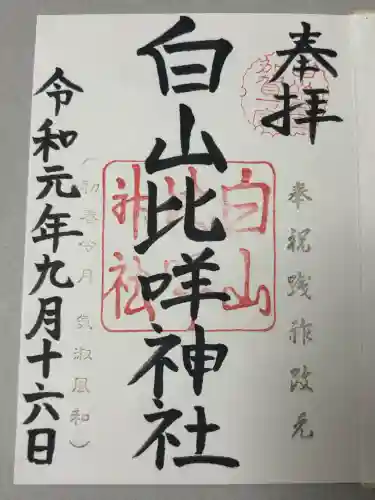 奉拝
奉祝践祚改元
白山比咩神社
白山
比咩
神社
令和元年九月十六日
(初春令月 気淑風和)